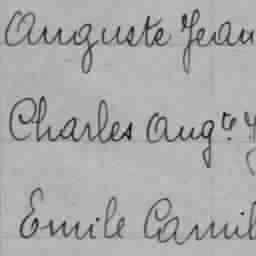 Auguste Jean
Charles Aug.te
Emile Camil